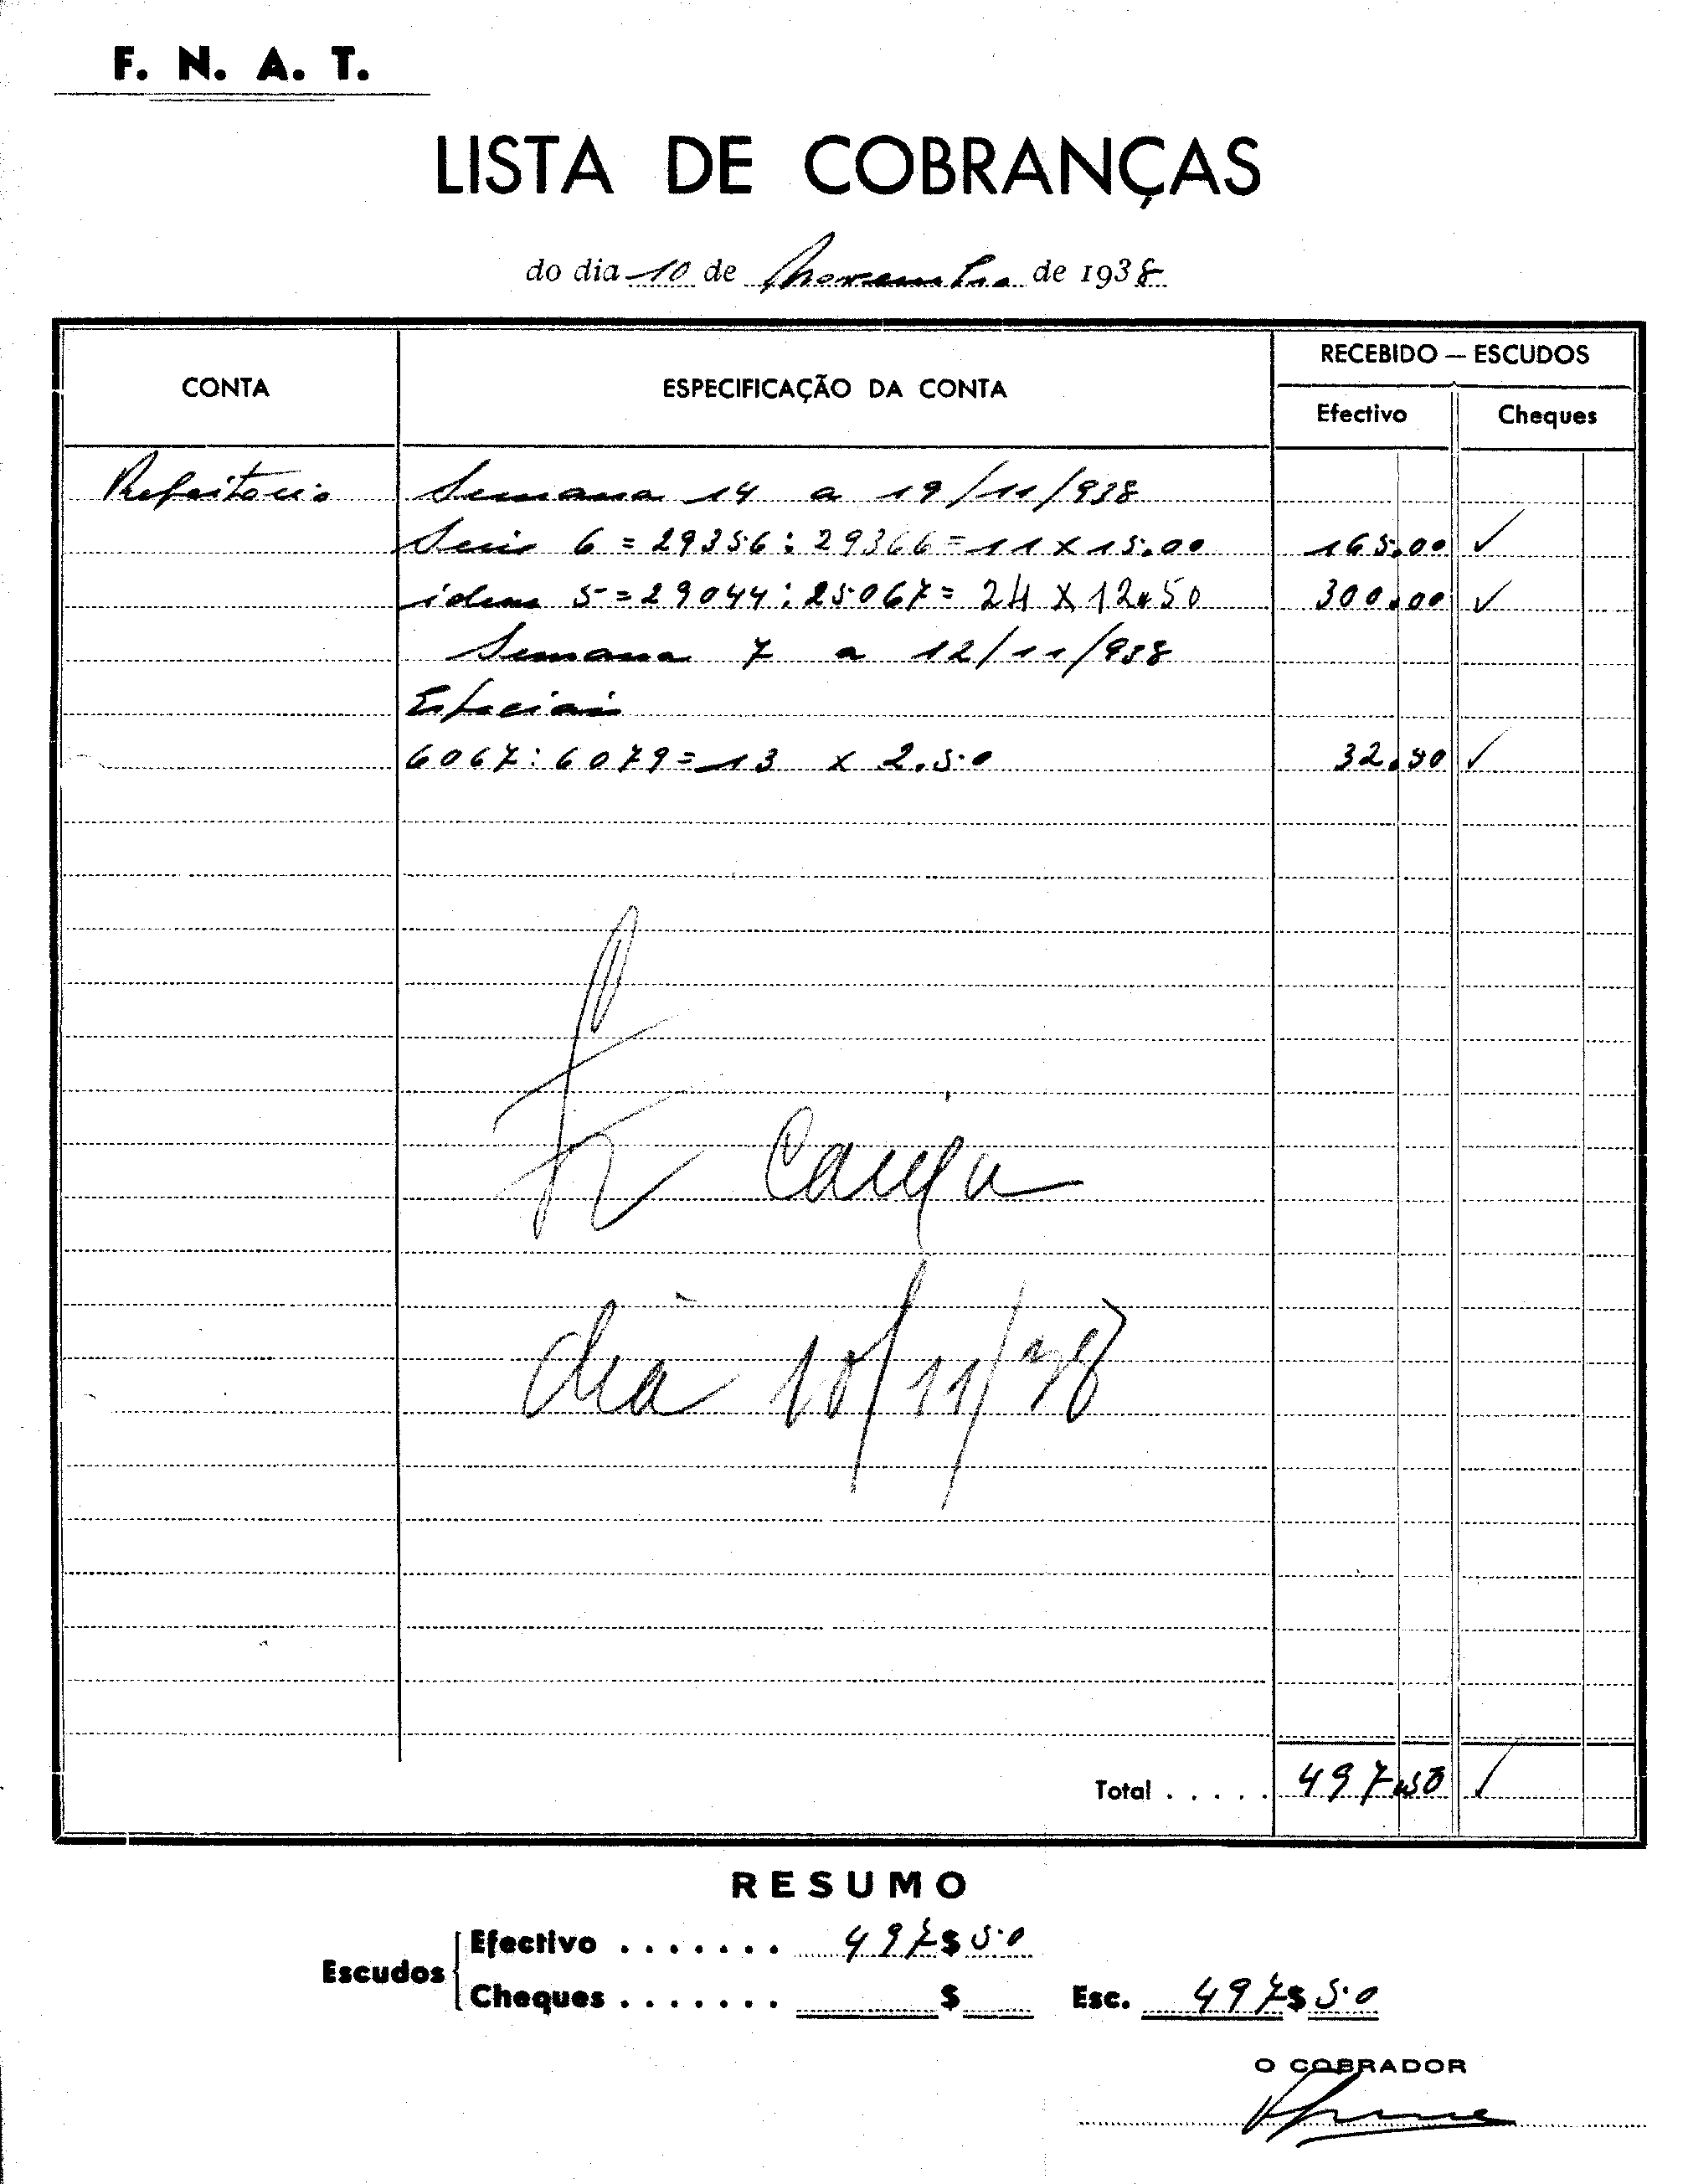 F. N. A. T.
LISTA DE COBRANÇAS
do dia 10 de Novembro de 1938
CONTA
ESPECIFICAÇÃO DA CONTA
RECEBIDO — ESCUDOS
Efectivo
Cheques
Refeitorio Semana 14 a 19/11/938
Serie 6 = 29356 : 29366 = 11 x 15.00 165.00 ✓
idem 5 = 29044 : 25067 = 24 x 12.50 300.00 ✓
Semana 7 a 12/11/938
Especiais
6067 : 6079 = 13 x 2.50 32.50 ✓
Caixa
dia 10/11/38
Total . . . . . 497.50 ✓
RESUMO
Escudos
Efectivo . . . . . . . 497$50
Cheques . . . . . . . $ Esc. 497$50
O COBRADOR